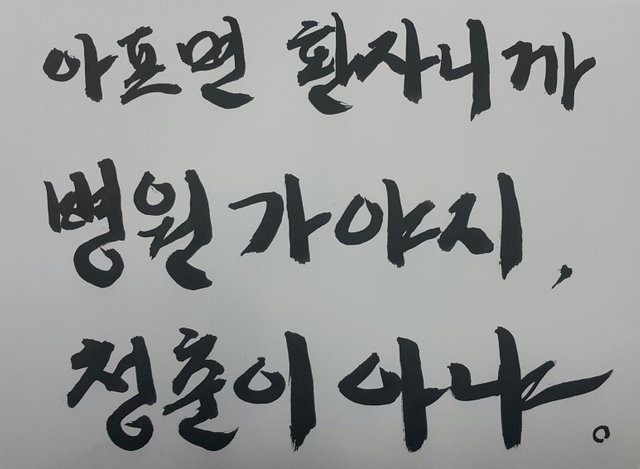 아프면 환자니까
병원 가야지,
청춘이 아냐。